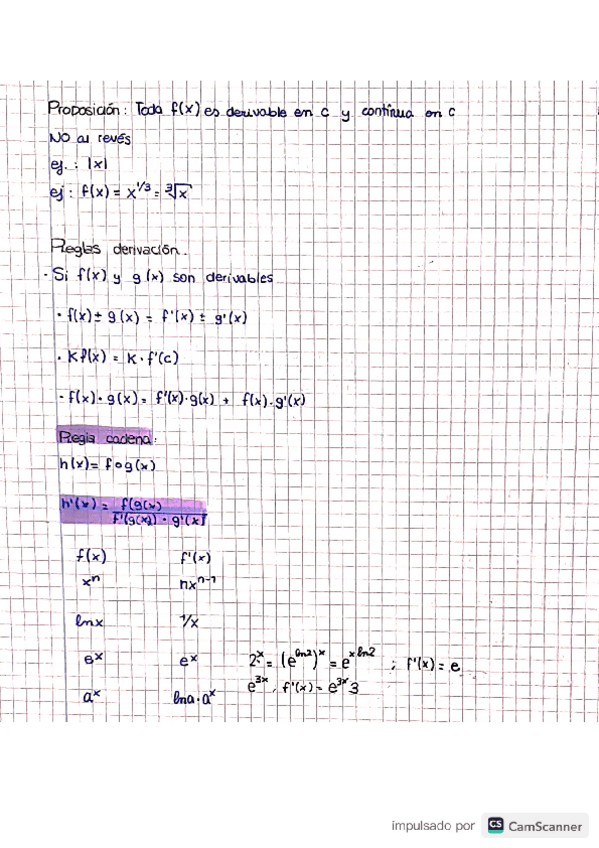 Proposición: Toda f(x) es derivable en c y continua en c
NO al revés
ej.: |x|
ej: f(x) = x^1/3 = ∛x
Reglas derivación.
· Si f(x) y g(x) son derivables
· f(x) ± g(x) = f'(x) ± g'(x)
· K f(x) = K · f'(c)
· f(x) · g(x) = f'(x) · g(x) + f(x) · g'(x)
Regla cadena:
h(x) = f∘g(x)
h'(x) = f(g(x)
f'(g(x)) · g'(x)
f(x) f'(x)
x^n nx^n-1
ln x 1/x
e^x e^x 2^x = (e^ln2)^x = e^x ln2 ; f'(x) = e
a^x ln a · a^x e^3x, f'(x) = e^3x 3
impulsado por CS CamScanner